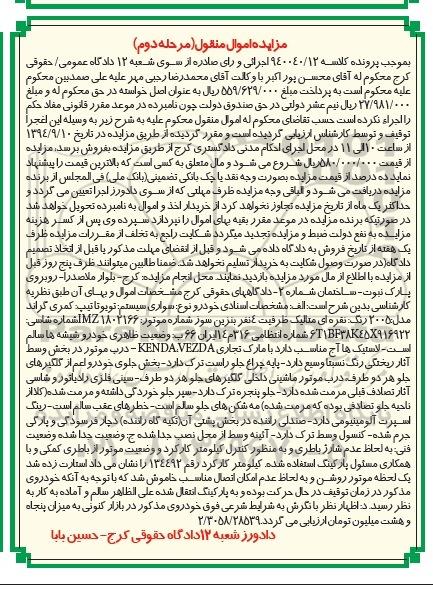 مزایده اموال منقول(مرحله دوم)
بموجب پرونده کلاسه 940040/12 اجرائی و رای صادره از سوی شعبه 12 دادگاه عمومی/ حقوقی
کرج محکوم له آقای محسن پور اکبر با وکالت آقای محمدرضا رجبی مهر علیه علی صمدبین محکوم
علیه محکوم است به پرداخت مبلغ 559/629/000 ریال به عنوان اصل خواسته در حق محکوم له و مبلغ
27/981/000 ریال نیم عشر دولتی در حق صندوق دولت چون نامبرده در موعد مقرر قانونی مفاد حکم
را اجراء نکرده است حسب تقاضای محکوم له اموال منقول محکوم علیه به شرح زیر به وسیله این اجرا
توقیف و توسط کارشناس ارزیابی گردیده است و مقرر گردیده از طریق مزایده در تاریخ 1394/9/10
از ساعت 10 الی 11 در محل اجرای احکام مدنی دادگستری کرج از طریق مزایده بفروش برسد. مزایده
از قیمت 580/000/000 ریال شروع می شود و مال متعلق به کسی است که بالاترین قیمت را پیشنهاد
نماید ده درصد از قیمت مزایده بصورت وجه نقد یا چک بانکی تضمینی(بانک ملی) فی المجلس از برنده
مزایده دریافت می شود و الباقی وجه مزایده ظرف مهلتی که از سوی دادورز اجرا تعیین می گردد و
حداکثر یک ماه از تاریخ مزایده تجاوز نخواهد کرد از خریدار اخذ و اموال به نامبرده تحویل خواهد شد
در صورتیکه برنده مزایده در موعد مقرر بقیه بهای اموال را نپردازد سپرده وی پس از کسر هزینه
مزایده به نفع دولت ضبط و مزایده تجدید میگردد شکایت راجع به تخلف از مقررات مزایده ظرف
یک هفته از تاریخ فروش به دادگاه داده می شود و قبل از انقضای مهلت مذکور یا قبل از اتخاذ تصمیم
دادگاه(در صورت وصول شکایت به خریدار تسلیم نخواهد شد. ضمنا طالبین میتوانند ظرف پنج روز قبل
از مزایده با اطلاع از مال مورد مزایده بازدید نمایند. محل انجام مزایده: کرج- بلوار ملاصدرا- روبروی
پارک نبوت- ساختمان شماره 2- دادگاههای حقوقی کرج مشخصات اموال و بهای آن طبق نظریه
کارشناسی بدین شرح است:الف: مشخصات اسنادی خودرو نوع:سواری سیستم: تویوتا تیپ: کمری گراند
مدل:2005 رنگ: نقره ای متالیک ظرفیت 4نفر بنزین سوز شماره موتور: IMZ1802166شماره شاسی:
6T1BF38K45X916922 شماره انتظامی 316م14ایران 66 ب: وضعیت ظاهری خودرو شیشه ها سالم
است- لاستیک ها آج مناسب دارد با مارک تجاری KENDA.VEZDA – درب موتور در بخش وسط
آثار ریختگی رنگ نسبتا وسیع دارد- پایه چراغ جلو راست ترک دارد- بخش جلوی خودرو اعم از گلگیرهای
جلو هر دو طرف، درب موتور ماشینی داخلی گلگیرهای جلو هر دو طرف- سینی فلزی رادیاتور و شاسی
آثار تصادف قبلی مرمت شده دارد- جلو پنجره ترک دارد- سپر جلو خوردگی داشته و مرمت شده(کلا از
ناحیه جلو تصادفی بوده که مرمت شده) مه شکن های جلو سالم است- خطرهای عقب سالم است- رینگ
اسپرت آلومینیومی دارد- صندلی راننده در بخش پشتی آن(تکیه گاه راننده) دچار فرسودگی و پارگی
جرم شده- کنسول وسط ترک دارد- آئینه وسط از محل نصب جدا شده ج: وضعیت جدا شده وضعیت
فنی: به لحاظ عدم شارژ باطری و به منظور کنترل کیلومتر کارکرد و وضعیت موتور از باطری کمکی و با
همکاری مسئول پارکینگ استفاده شده. کیلومتر کارکرد رقم 134492 را نشان می داد استارت زده شد
یک لحظه موتور روشن و به لحاظ عدم امکان اتصال مناسب خاموش شد که با توجه به آنکه خودروی
مذکور در زمان توقیف در حال حرکت بوده و به پارکینگ انتقال شده علی الظاهر سالم و آماده به کار به
نظر رسید. د: اظهار نظر با نگرش به شرایط شرعی فوق خودروی مذکور در بازار کنونی به میزان پنجاه
و هشت میلیون تومان ارزیابی می گردد.2/3058/28539
دادورز شعبه 12دادگاه حقوقی کرج- حسین بابا